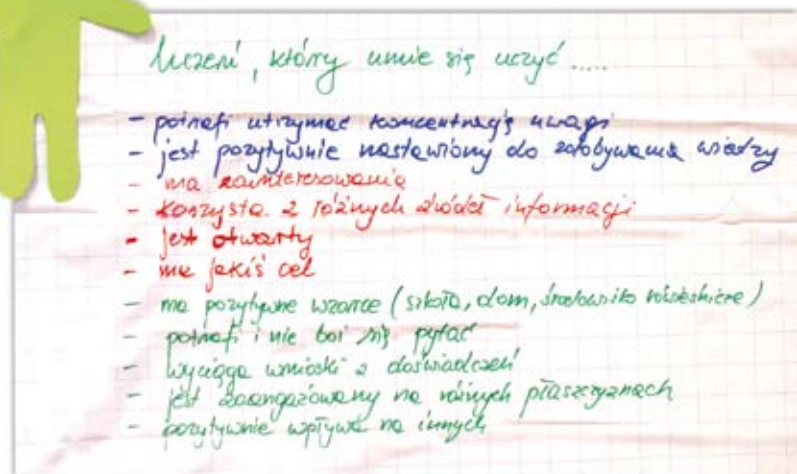 Uczeń, który umie się uczyć .....
- potrafi utrzymać koncentrację uwagi
- jest pozytywnie nastawiony do zdobywania wiedzy
- ma zainteresowania
- korzysta z różnych źródeł informacji
- jest otwarty
- ma jakiś cel
- ma pozytywne wzorce (szkoła, dom, środowisko rówieśnicze)
- potrafi i nie boi się pytać
- wyciąga wnioski z doświadczeń
- jest zaangażowany na różnych płaszczyznach
- pozytywnie wpływa na innych